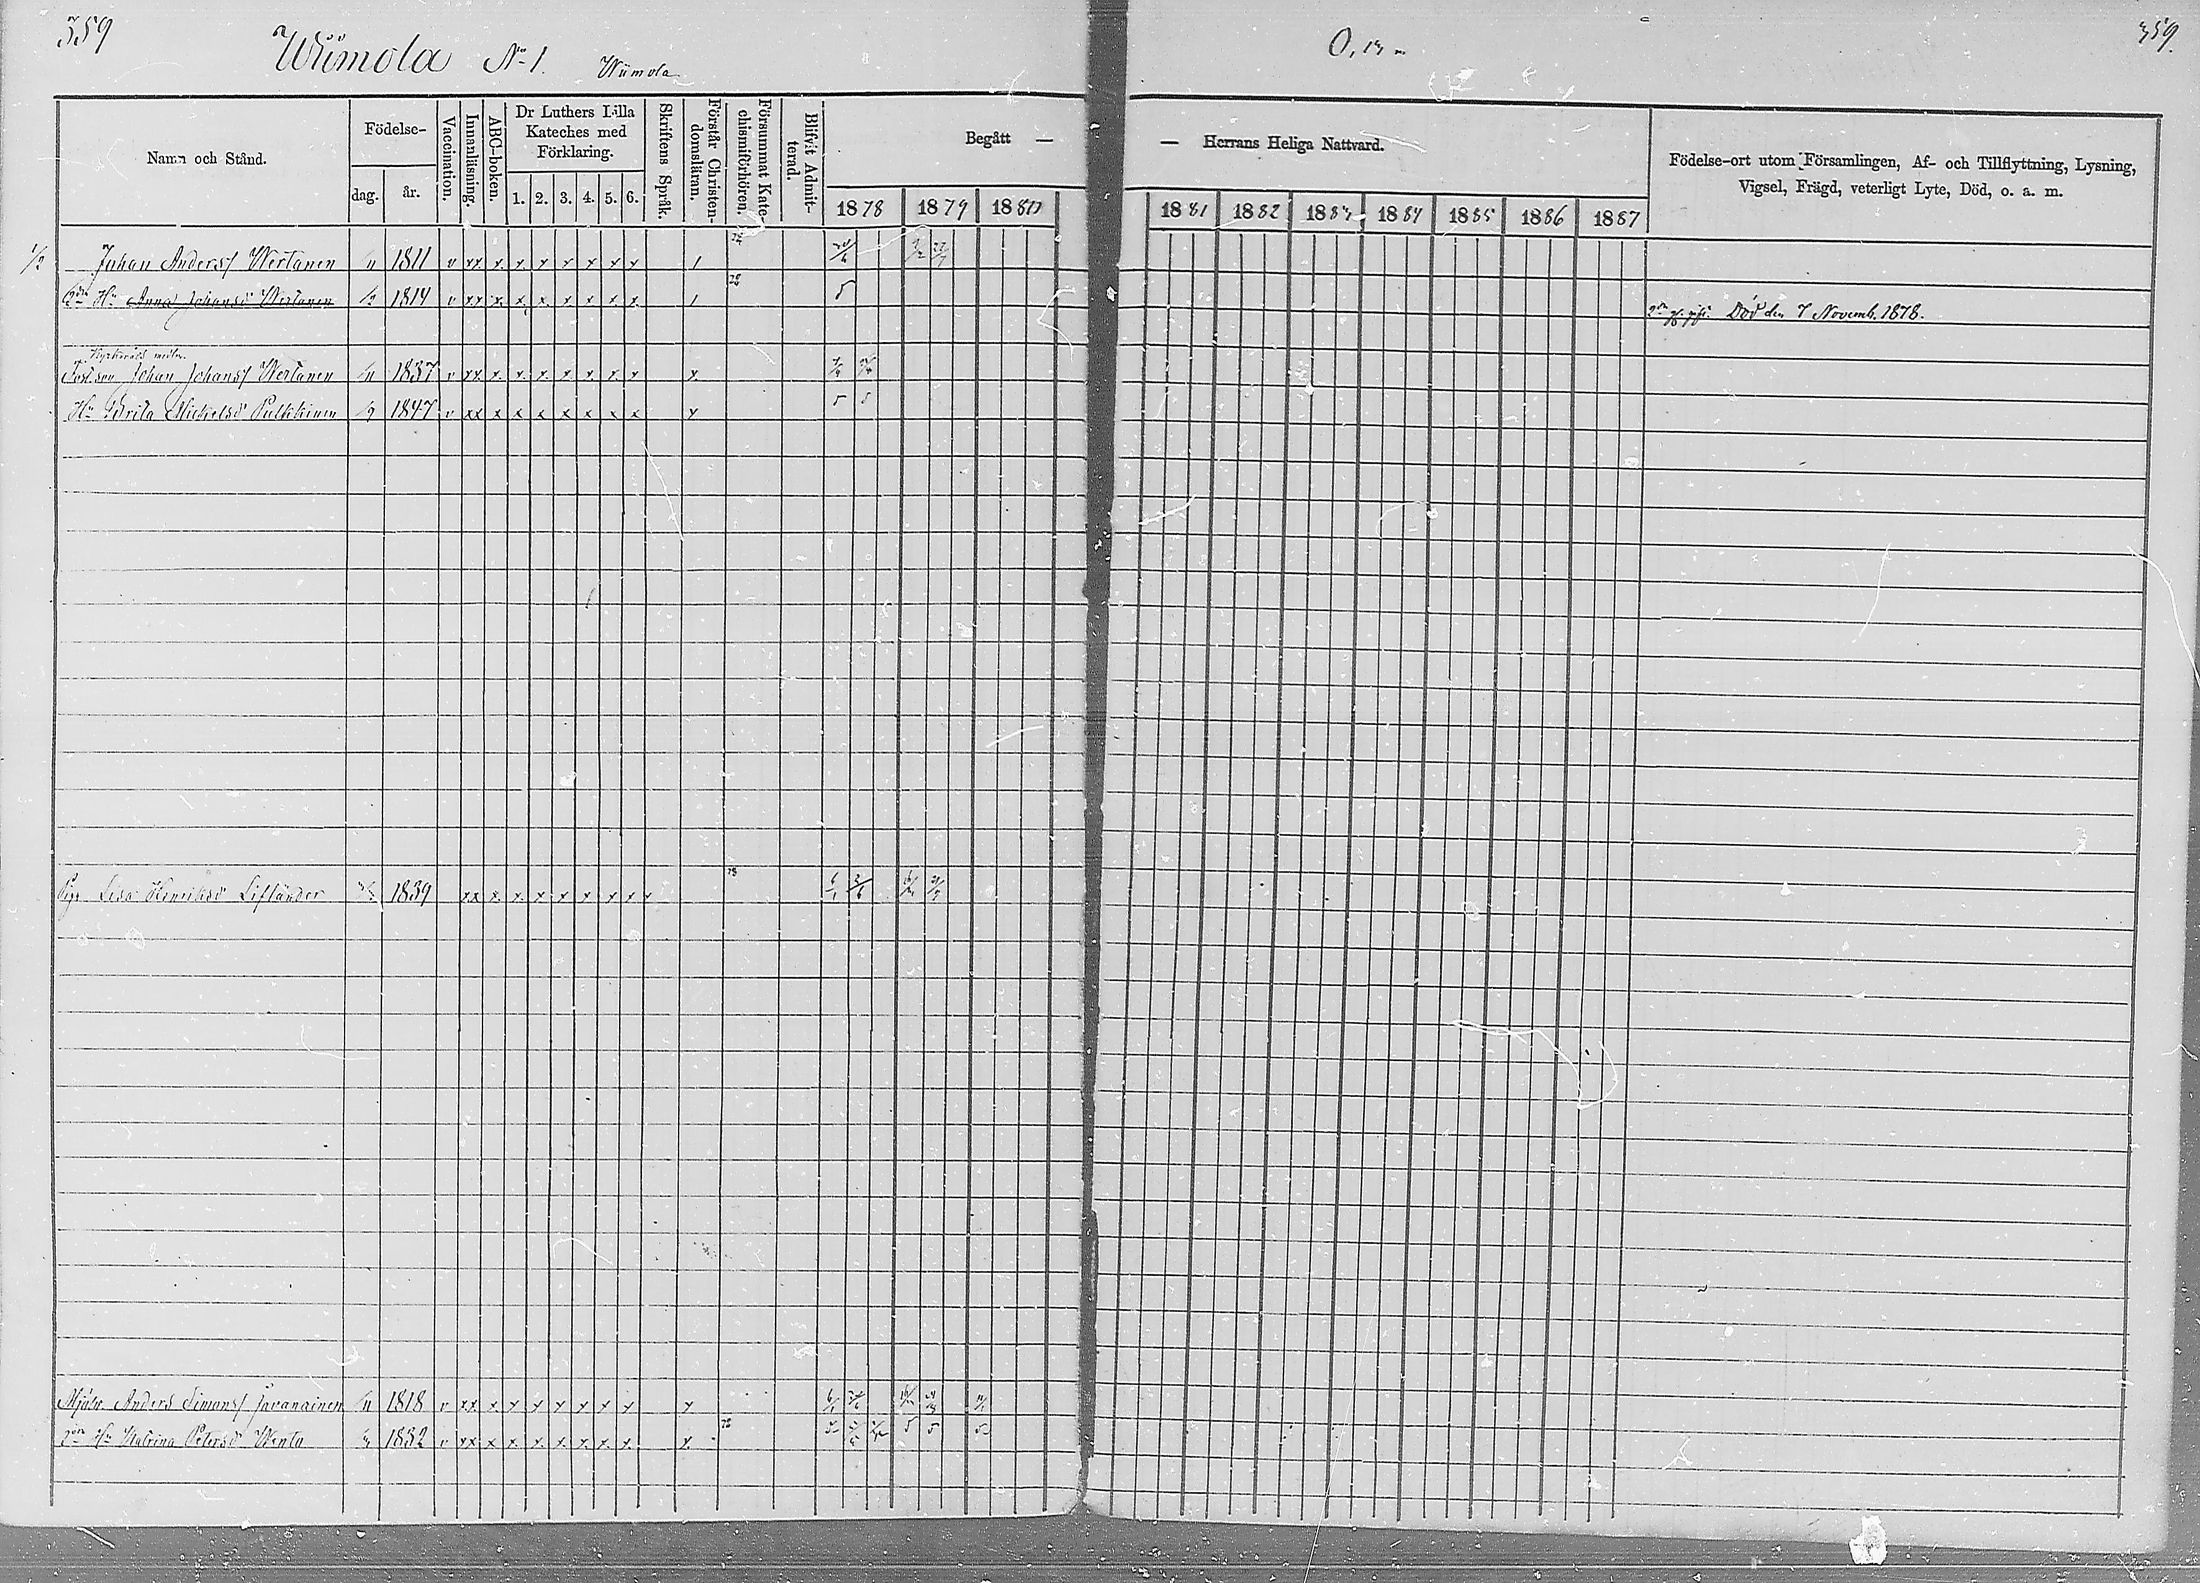 359
Wiimola No 1. Wiimola
O, 13
359.
Namn och Stånd.
Födelse-
dag.
år.
Vaccination.
Innanläsning.
ABC-boken.
Dr Luthers Lilla
Kateches med
Förklaring.
1. 2. 3. 4. 5. 6.
Skriftens Språk.
Förstår Christen-
domsläran.
Försummat Kate-
chismiförhören.
Blifvit Admit-
terad.
Begått —
— Herrans Heliga Nattvard.
1878 1879 1880
1881 1882 1883 1884 1885 1886 1887
Födelse-ort utom Församlingen, Af- och Tillflyttning, Lysning,
Vigsel, Frägd, veterligt Lyte, Död, o. a. m.
1/2 Johan Anders/ Wertanen 1811 v xx x. x. x x x x x 1
Hu Anna Johansd Wertanen 1814 v xx x. x. x. x x x. x. 1 5 Död den 7 Novemb. 1878.
Johan Johans/ Wertanen 1837 v xx x. x. x. x. x. x. x x.
Hu Mickelsd Pulkkinen 1847 v xx x x x x x x x x 5 5
Lisa Henriksd Lifländer 1839 xx x. x. x x x x x x
Anders Simons/ Javanainen 1818 v xx x x x x x x x x
Hu Katrina Petersd Wento 1832 v xx x x. x. x. x. x. x. x. 5 5